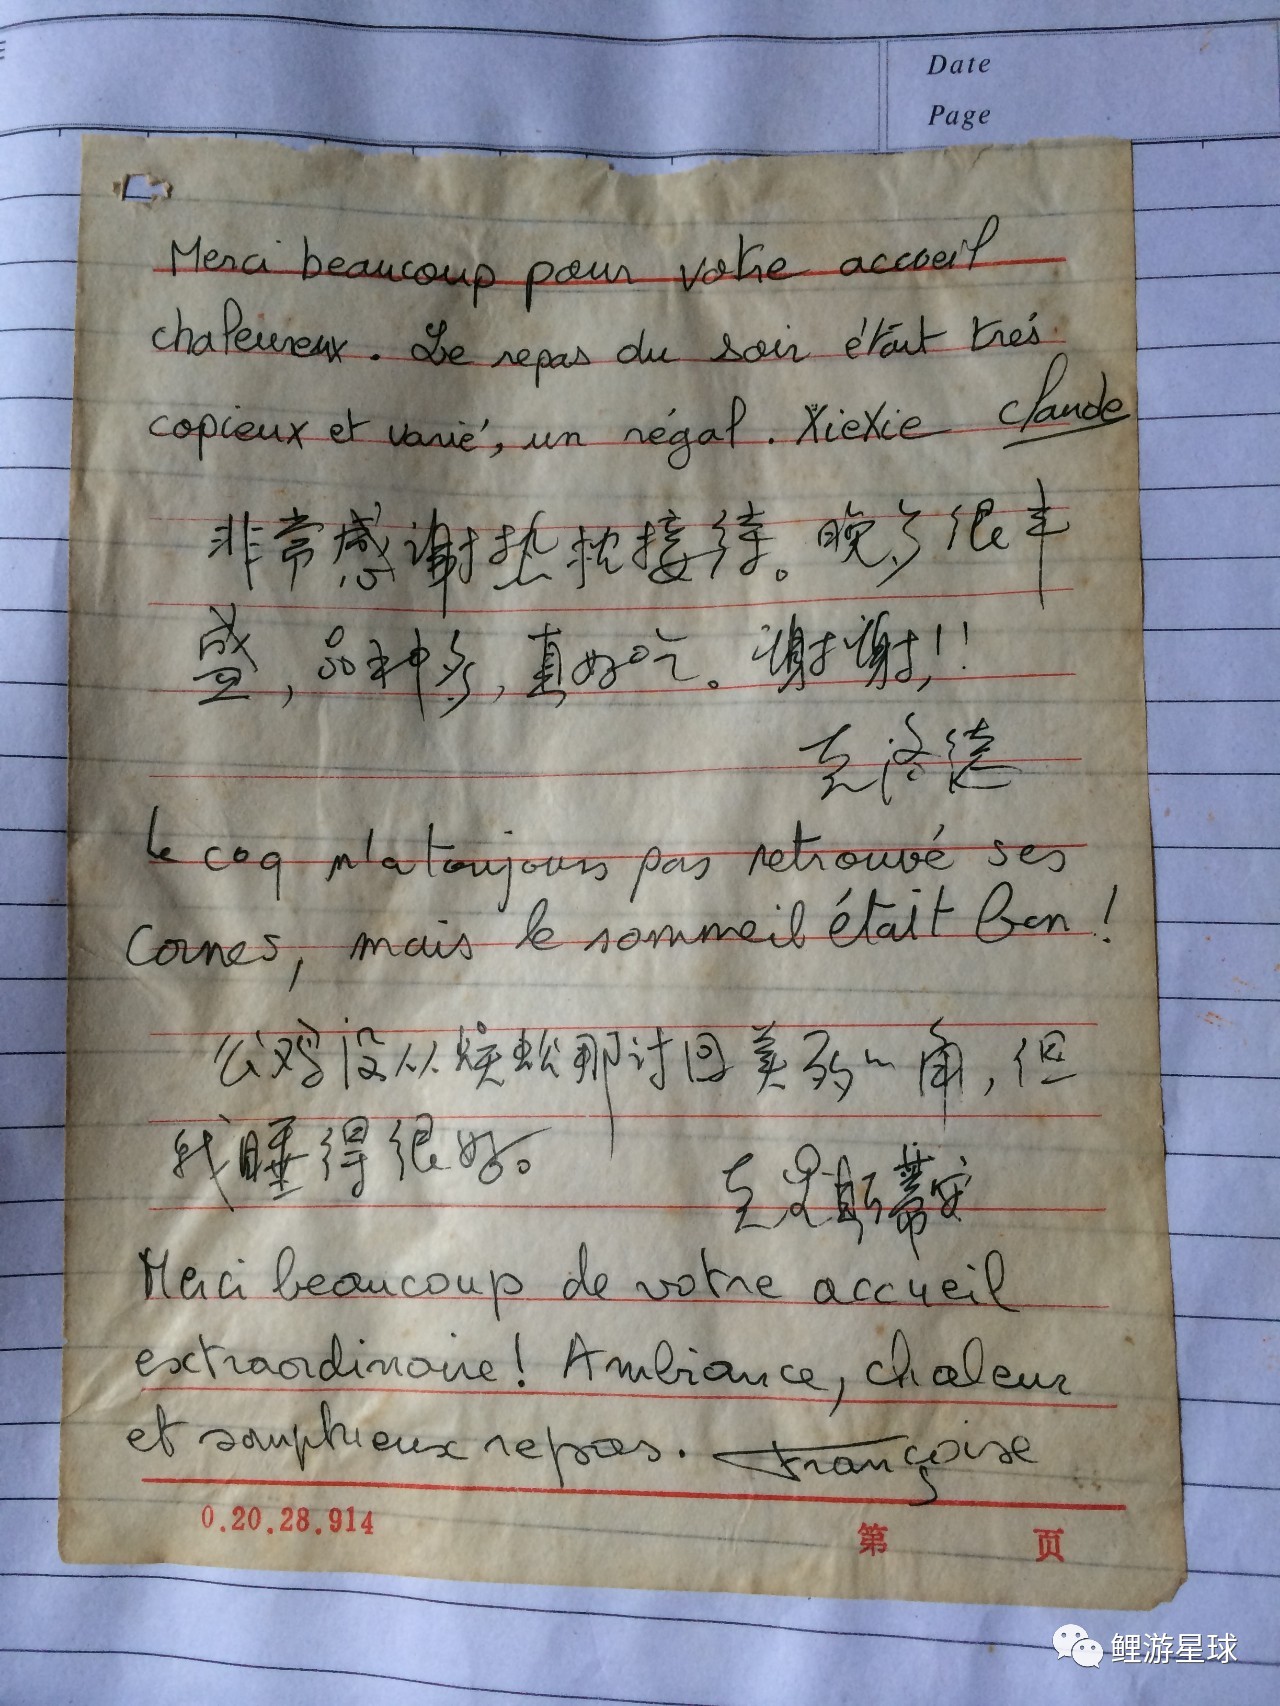 Date
Page
Merci beaucoup pour votre accoeil
chaleureux. Le repas du soir était trés
copieux et varié, un régal. XieXie Claude
非常感谢热忱接待。晚歺很丰
盛，品种多，真好吃。谢谢!!
克洛德
le coq n'a toujours pas retrouvé ses
cornes, mais le sommeil était bon!
公鸡没从蜈蚣那讨回美丽的角，但
我睡得很好。
克里斯蒂安
Merci beaucoup de votre accueil
extraordinaire! Ambiance, chaleur
et somptueux repas. Françoise
0.20.28.914
第 页
鲤游星球